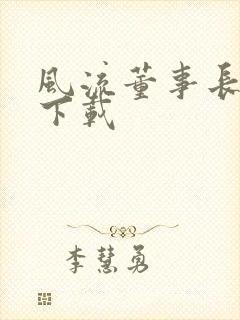 風流董事長
下載
李慧勇